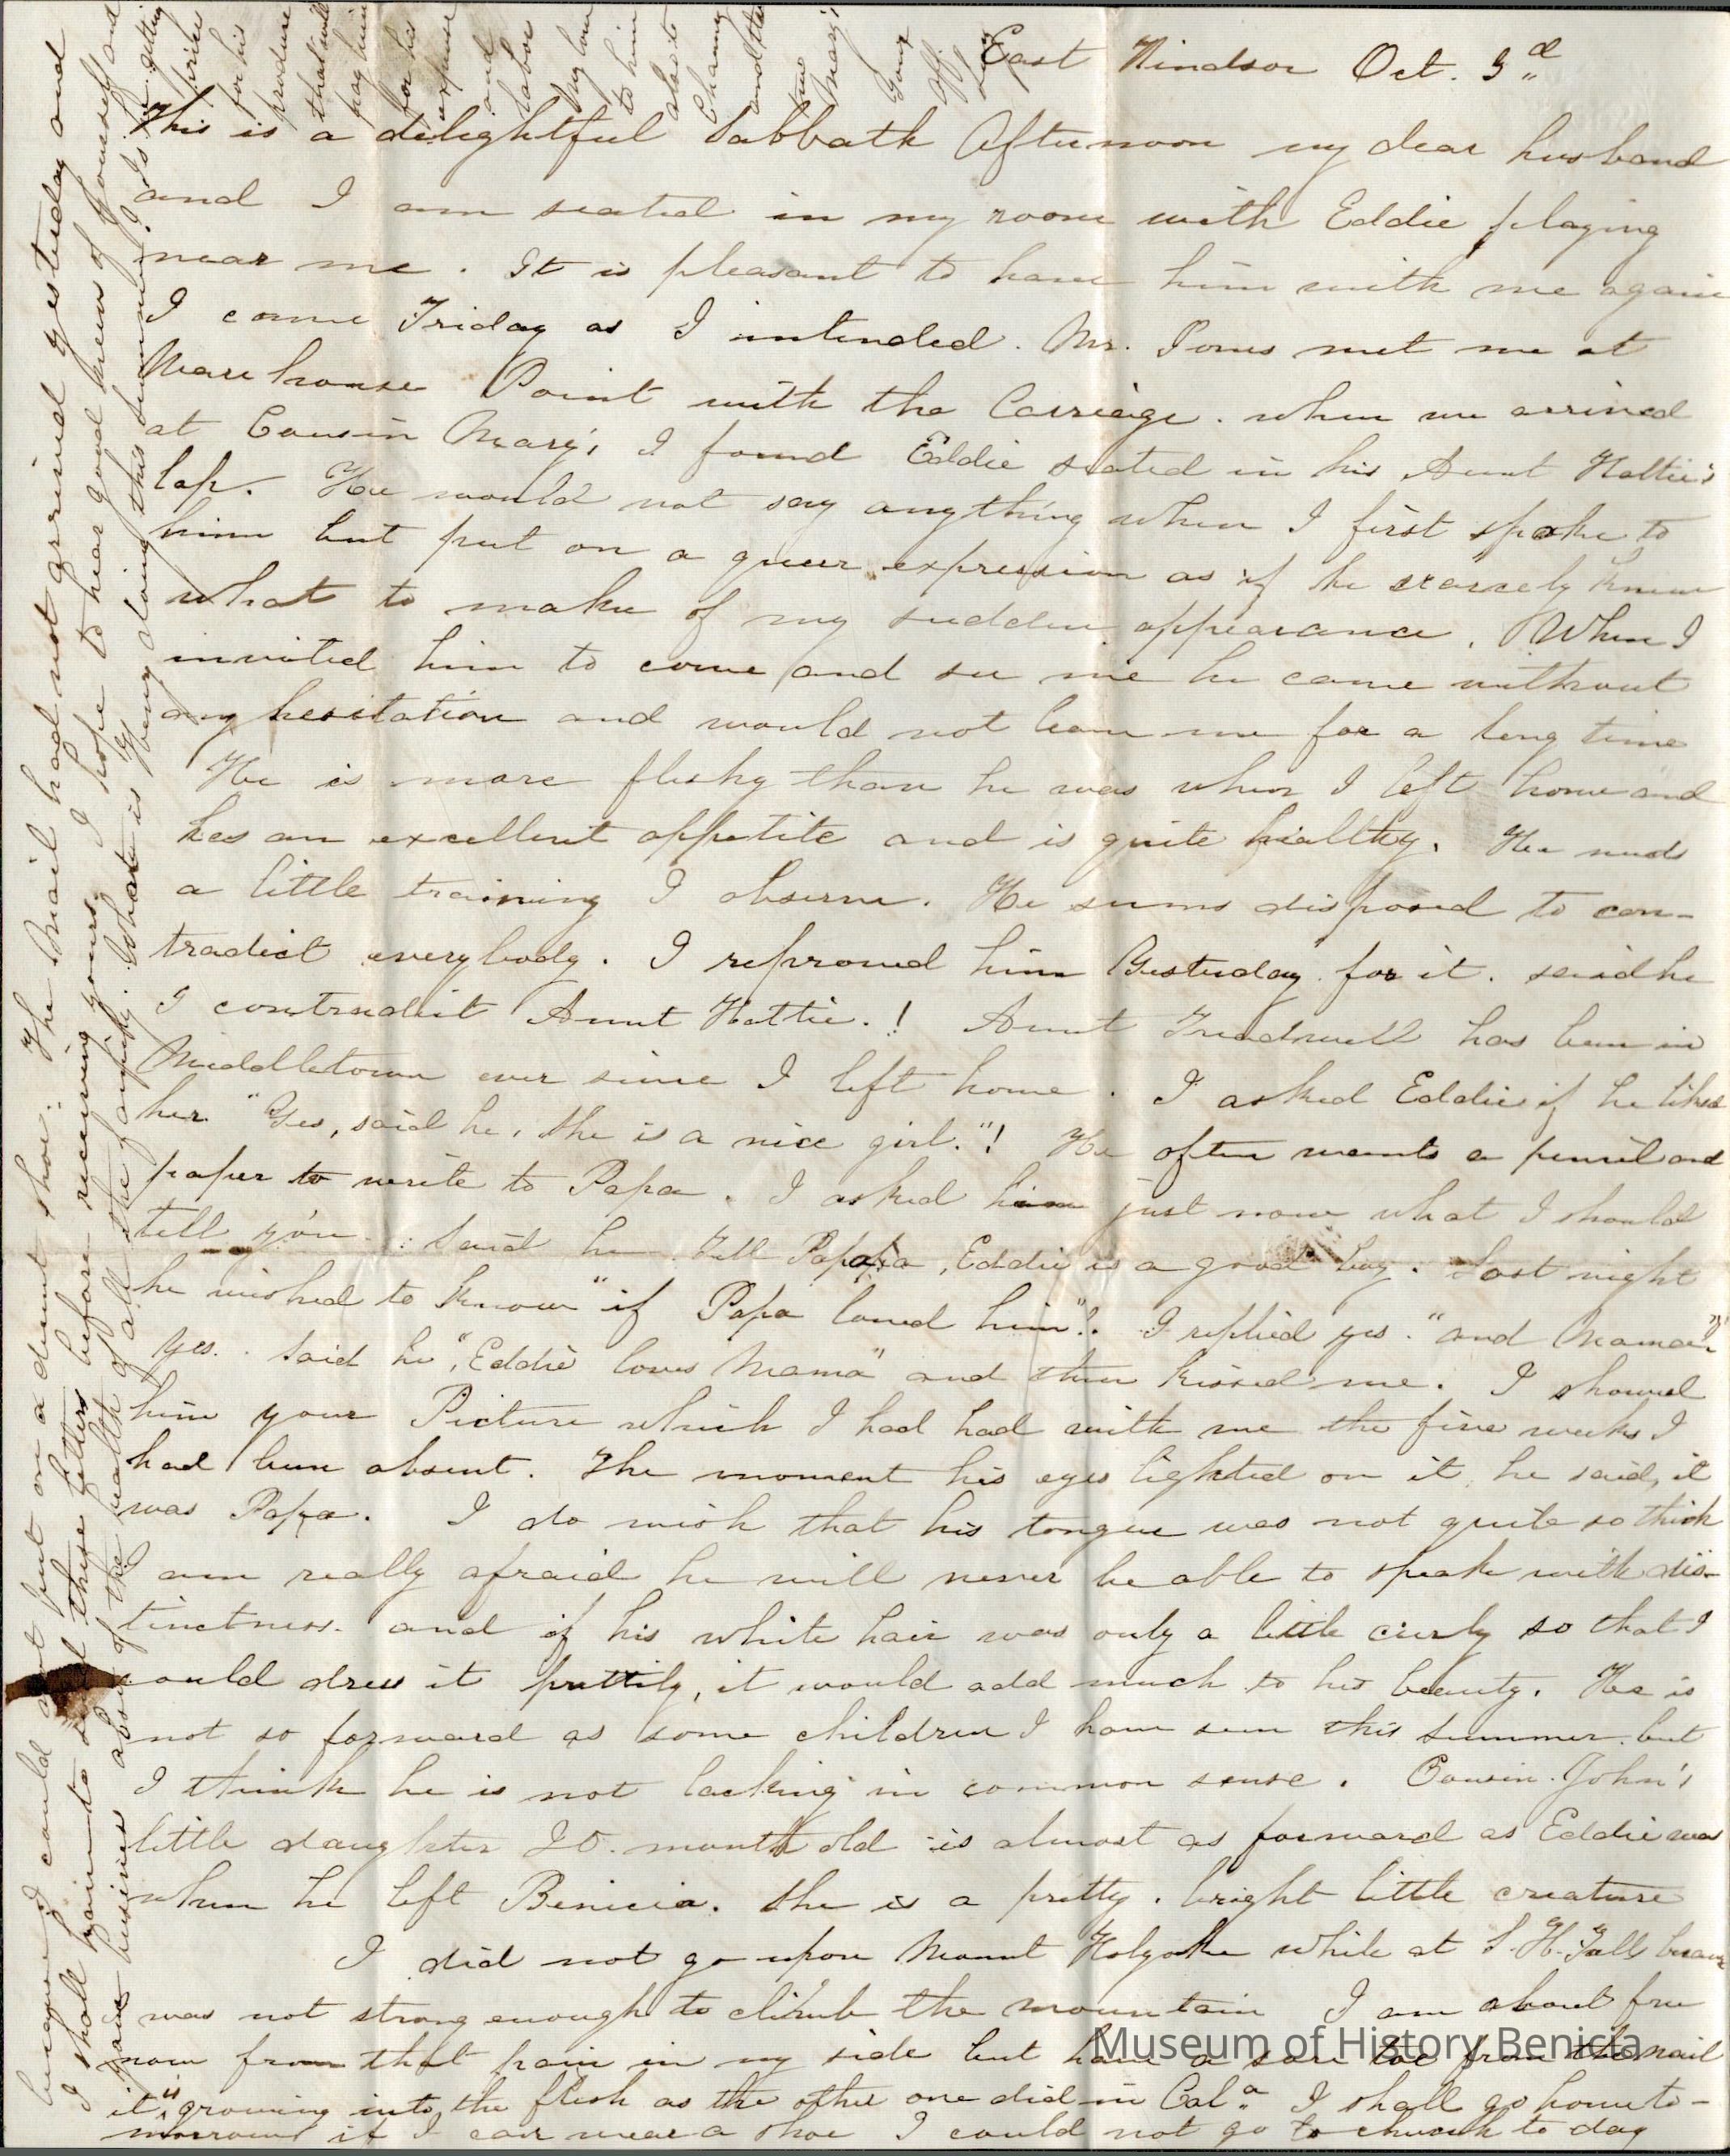 East Windsor Oct. 3d
This is a delightful Sabbath Afternoon my dear husband
and I am seated in my room with Eddie playing
near me. It is pleasant to have him with me again
I came Friday as I intended. Mr. Jones met me at
Warehouse Point with the Carriage. when we arrived
at Cousin Mary's I found Eddie seated in his Aunt Hattie's
lap. He would not say anything when I first spoke to
him but put on a queer expression as if he scarcely knew
what to make of my sudden appearance. When I
invited him to come and see me he came without
any hesitation and would not leave me for a long time
He is more fleshy than he was when I left home and
has an excellent appetite and is quite healthy. He needs
a little training I observe. He seems disposed to con-
tradict everybody. I reproved him Yesterday for it. said he
I contradict Aunt Hattie.! Aunt Treadwell has been in
Middletown ever since I left home. I asked Eddie if he liked
her. "Yes, said he, she is a nice girl."! He often wants a pencil and
paper to write to Papa. I asked him just now what I should
tell you. Said he Tell Papa, Eddie is a good boy. Last night
he wished to know "if Papa loved him"? I replied yes. "and Mama"?
Yes. Said he, "Eddie loves Mama" and then kissed me. I showed
him your Picture which I had had with me the five weeks I
had been absent. The moment his eyes lighted on it he said, it
was Papa. I do wish that his tongue was not quite so thick
I am really afraid he will never be able to speak with dis-
tinctness. and if his white hair was only a little curly so that I
could dress it prettily, it would add much to his beauty. He is
not so forward as some children I have seen this summer. but
I think he is not lacking in common sense. Cousin John's
little daughter 20. month old is almost as forward as Eddie was
when he left Benicia. She is a pretty. bright little creature
I did not go upon Mount Holyoke while at S. H. Falls because
I was not strong enough to climb the mountain I am about free
now from that pain in my side but have a sore toe from the nail
it's growing into the flesh as the other one did in Cala. I shall go home to-
morrow if I can wear a shoe I could not go to church to day
because I could not put on a decent shoe. The Mail had not arrived yesterday and
I shall have to seal these letters before receiving yours. I hope to hear good news of yourself and
Your business also of the health of all the family. What is Gy being doing this summer? Is he getting
prices
for his
produce
that will
pay him
for his
expense
and
labor
My love
to him
also to
Channy
and the
two
Mary's
Museum of History Benicia